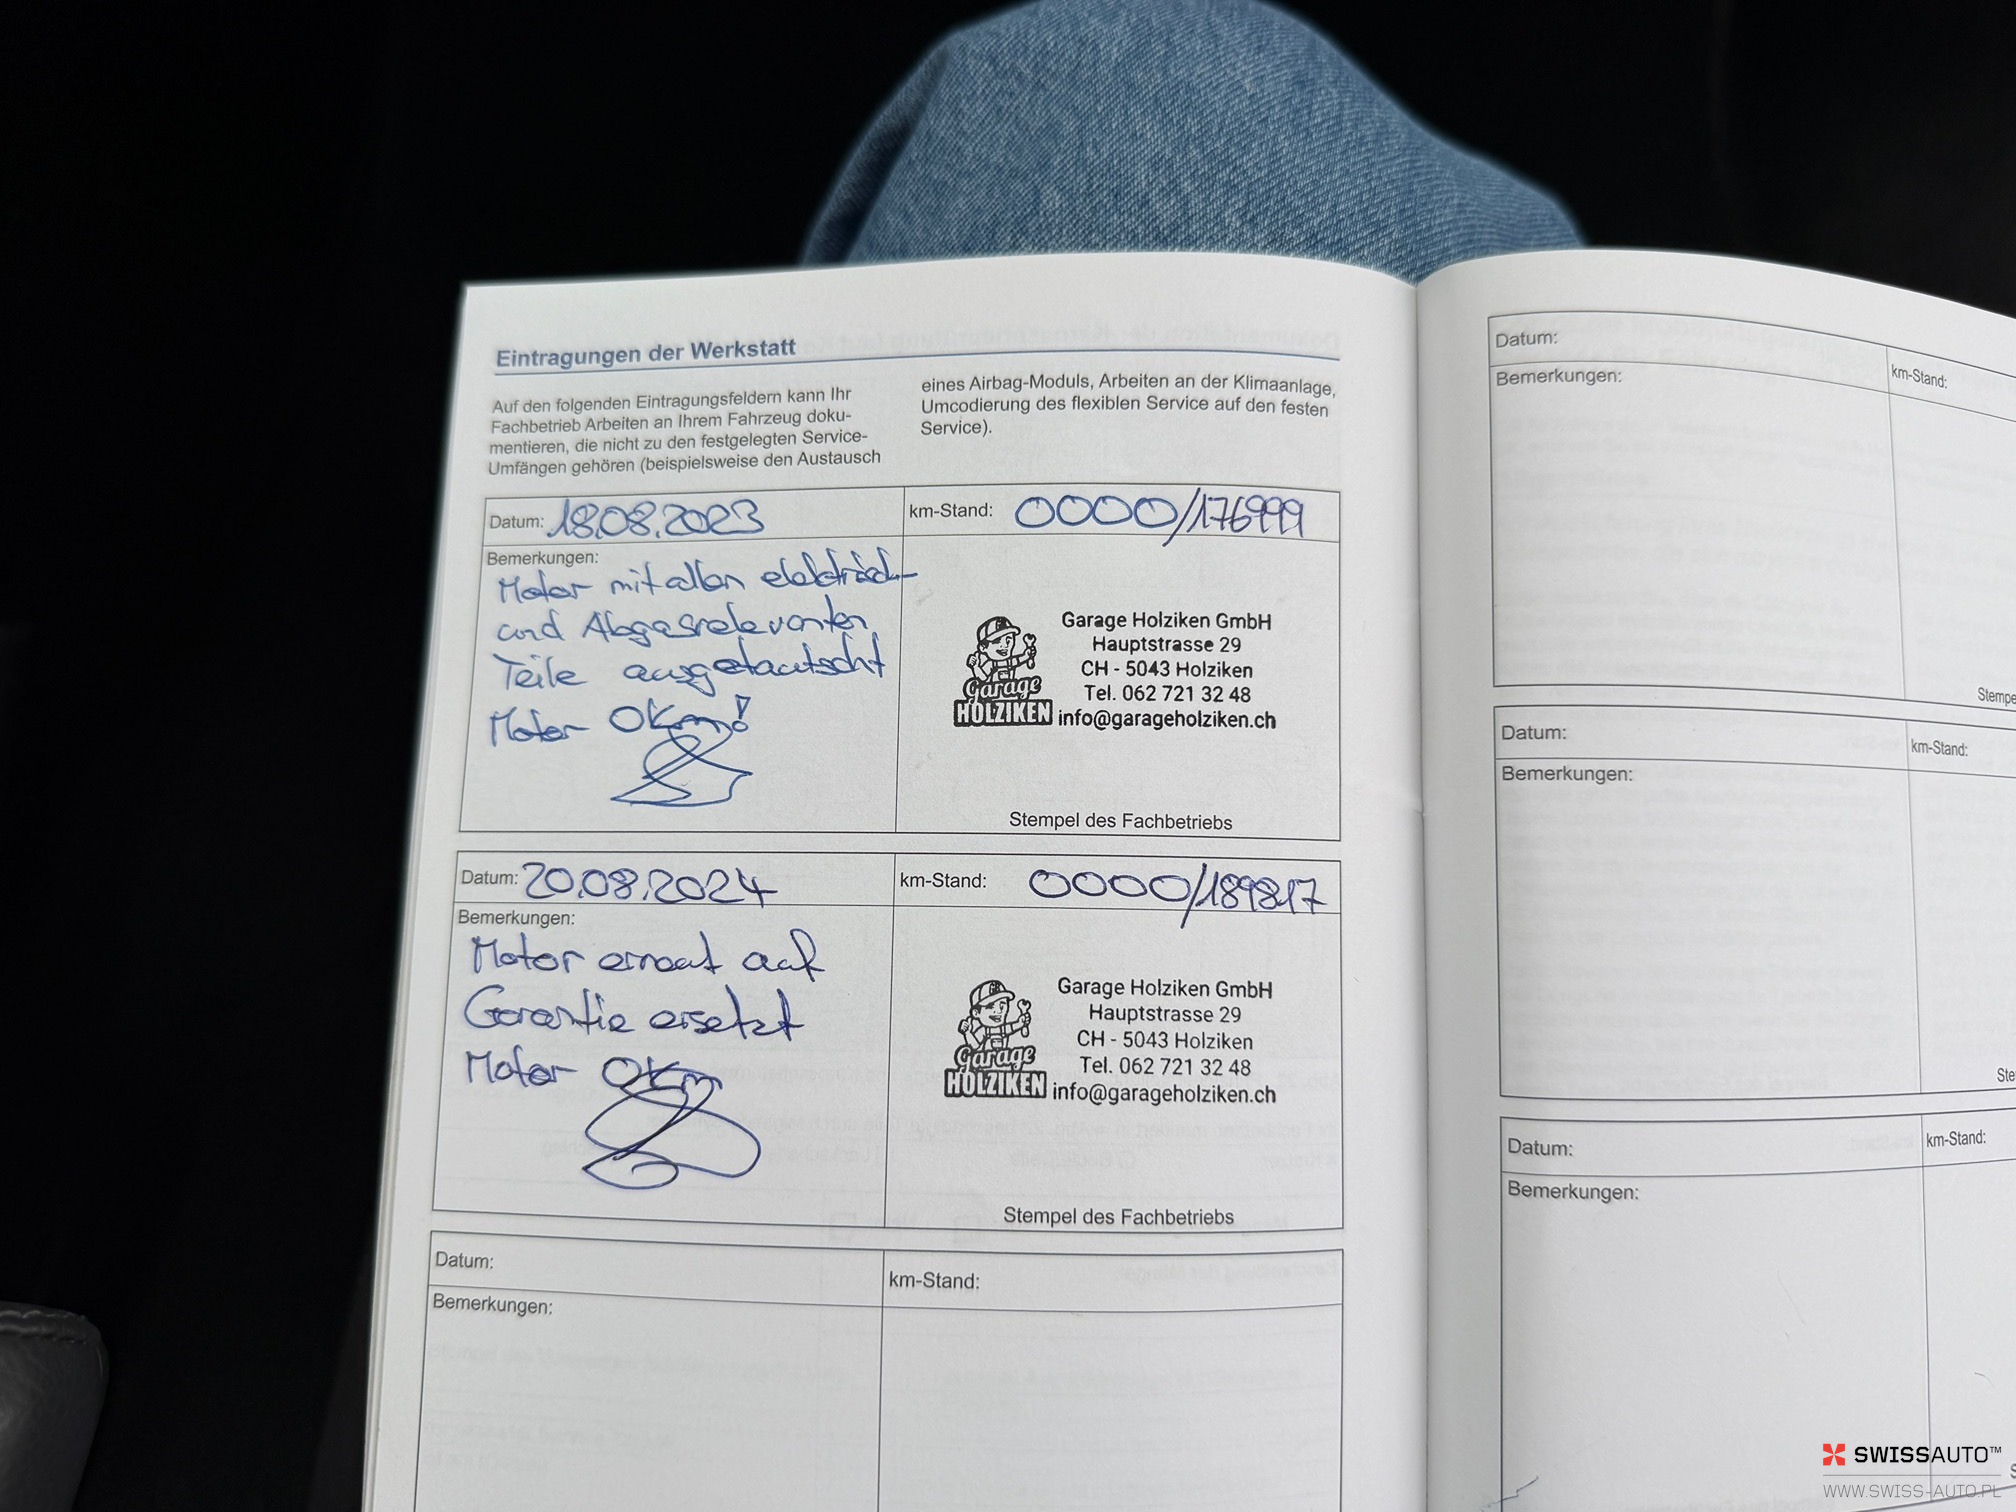 Eintragungen der Werkstatt
Auf den folgenden Eintragungsfeldern kann Ihr
Fachbetrieb Arbeiten an Ihrem Fahrzeug doku-
mentieren, die nicht zu den festgelegten Service-
Umfängen gehören (beispielsweise den Austausch
eines Airbag-Moduls, Arbeiten an der Klimaanlage,
Umcodierung des flexiblen Service auf den festen
Service).
Datum: 18.08.2023
km-Stand: 0000/176999
Bemerkungen:
Motor mit allen elektrisch
und Abgasrelevanten
Teile ausgetauscht
Motor 0Km!
Garage Holziken GmbH
Hauptstrasse 29
CH - 5043 Holziken
Tel. 062 721 32 48
info@garageholziken.ch
Garage
HOLZIKEN
Stempel des Fachbetriebs
Datum: 20.08.2024
km-Stand: 0000/189817
Bemerkungen:
Motor erneut auf
Garantie ersetzt
Motor 0Km
Garage Holziken GmbH
Hauptstrasse 29
CH - 5043 Holziken
Tel. 062 721 32 48
info@garageholziken.ch
Garage
HOLZIKEN
Stempel des Fachbetriebs
Datum:
km-Stand:
Bemerkungen:
Datum:
km-Stand:
Bemerkungen:
Stempe
Datum:
km-Stand:
Bemerkungen:
Ste
Datum:
km-Stand:
Bemerkungen:
S
SWISSAUTO™
WWW.SWISS-AUTO.PL